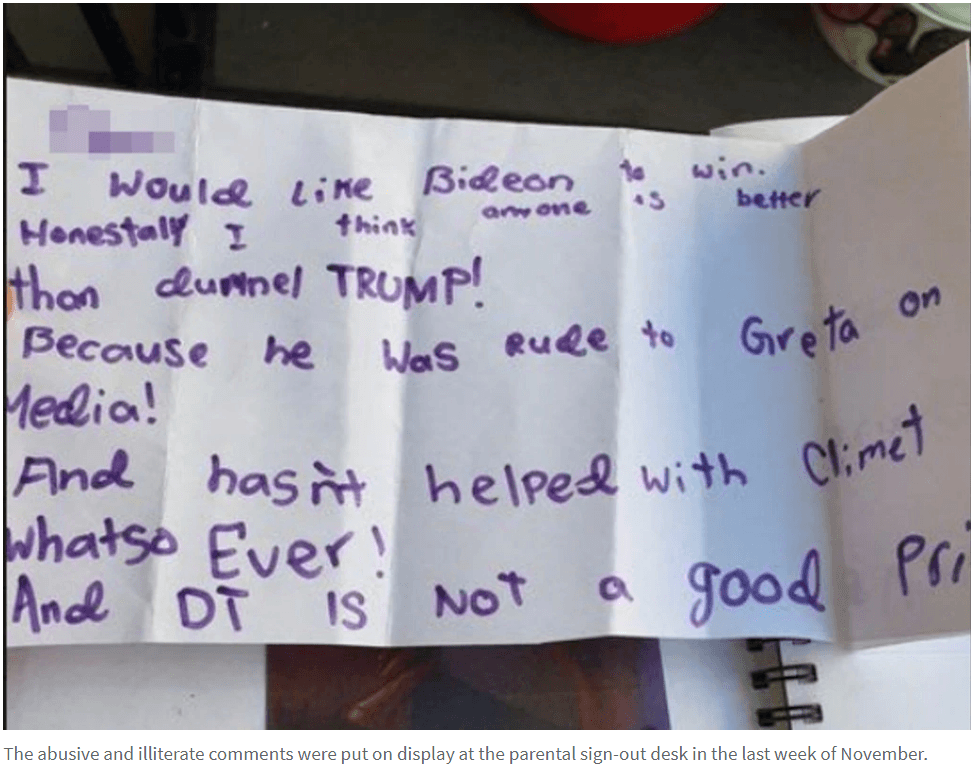 I Would Like Bideon to win.
Honestaly I think anyone is better
than dunnel TRUMP!
Because he Was Rude to Greta on
Media!
And hasn't helped with Climet
Whatso Ever!
And DT IS NOT a good Pri
The abusive and illiterate comments were put on display at the parental sign-out desk in the last week of November.